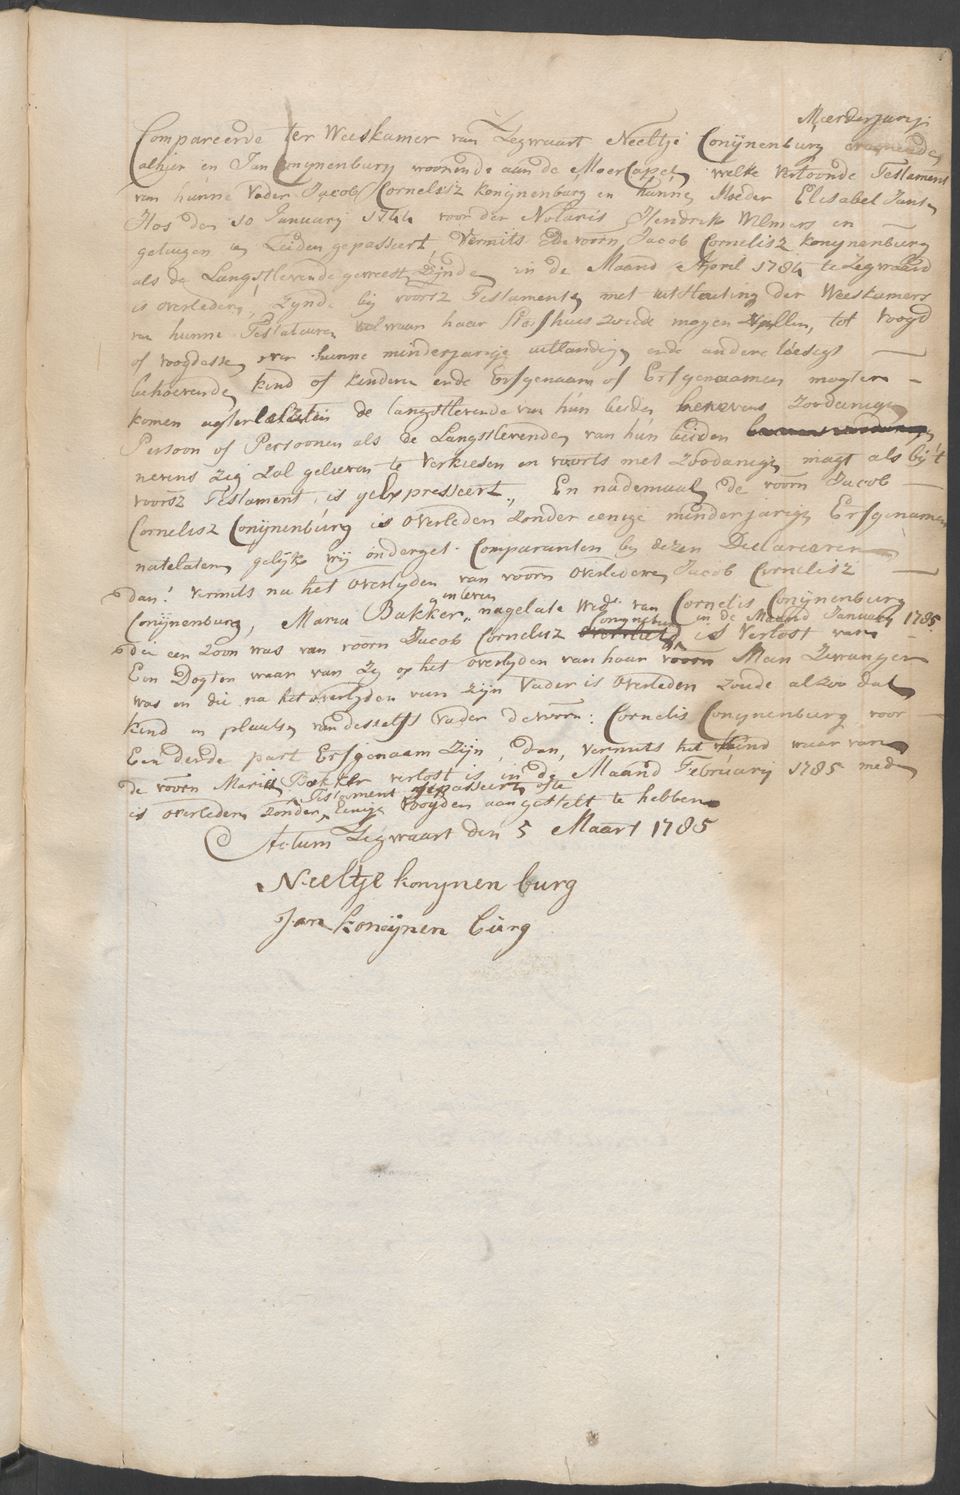 Meerderjarig
Compareerde ter Weeskamer van Zegwaart Neeltje Conijnenburg
alhier en Jan Conijnenburg woonende aan de Moercappel welke vertoonde Testament
van hunne Vader Jacob Cornelisz konijnenburg en hunne Moeder Elisabet Janse
Hos den 10 Januarij 1744 voor der Notaris Hendrik Wilmers en
getuigen in Leiden gepasseert Vermits de voorn Jacob Cornelisz konijnenburg
als de Langstlevende geweest Zijnde in de Maand April 1784 te Zegwaard
is overleden, Zijnde bij voorsz Testamente met uitsluiting der Weeskamers
van hunne Testateuren al waar haar Sterfhuis Zoude mogen vallen, tot voogd
of voogdesse over hunne minderjarige uitlandige ende andere toesigt
behoevende kind of kinderen ende Erfgenaam of Erfgenaamen mogten
komen agterlaten de langstlevende van hun beiden benevens zoodanige
Persoon of Persoonen als de Langstlevenden van hun beiden
nevens Zig Zal gelieven te verkiesen en voorts met Zoodanige magt als bij 't
voorsz Testament is geExpresseert, En nademaal de voorn Jacob
Cornelisz Conijnenburg is overleden Zonder eenige minderjarige Erfgenamen
natelaten gelijk wij onderget. Comparanten bij dezen Declareeren
dan! vermits na het overlijden van voorn overledene Jacob Cornelisz
in leven
Conijnenburg, Maria Bakker, nagelate Wede van Cornelis Conijnenburg
Conijnenburg in de Maand January 1785
die een Zoon was van voorn Jacob Cornelisz is verlost van
Een Dogter waar van Zij op het overlijden van haar Man Zwanger
was en die na het overlijden van Zijn Vader is overleden zoude alzoo dat
kind in plaatse van desselfs Vader de voorn: Cornelis Conijnenburg voor
Een derde part Erfgenaam Zijn, dan, vermits het kind waar van
de voorn Maria Bakker verlost is in de Maand February 1785 mede
Testament gepasseert ofte
is overleden zonder Eenige Voogden aangestelt te hebben
Actum Zegwaart den 5 Maart 1785
Neeltje konijnen burg
Jan konijnen burg